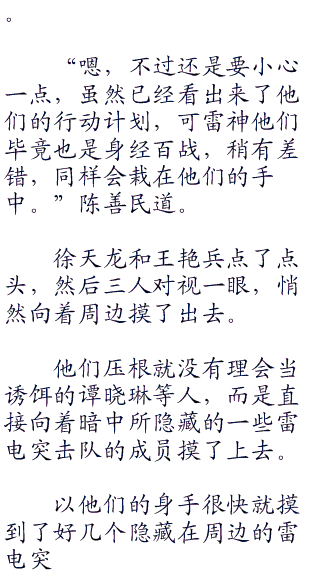 。
“嗯，不过还是要小心
一点，虽然已经看出来了他
们的行动计划，可雷神他们
毕竟也是身经百战，稍有差
错，同样会栽在他们的手
中。”陈善民道。
徐天龙和王艳兵点了点
头，然后三人对视一眼，悄
然向着周边摸了出去。
他们压根就没有理会当
诱饵的谭晓琳等人，而是直
接向着暗中所隐藏的一些雷
电突击队的成员摸了上去。
以他们的身手很快就摸
到了好几个隐藏在周边的雷
电突